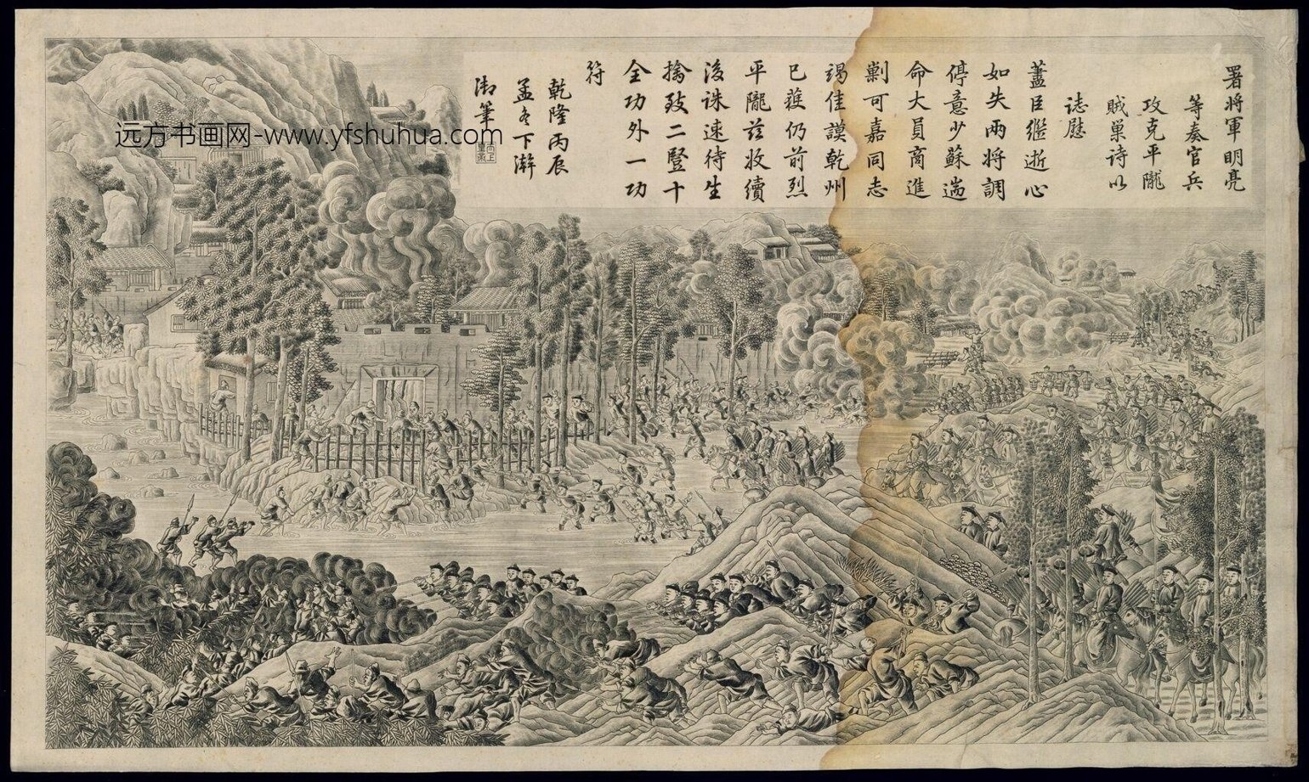 署將軍明亮
等奏官兵
攻克平隴
賊巢詩以
誌慰
藎臣繼逝心
如失兩將調
停意少蘇遄
命大員商進
剿可嘉同志
竭佳謨乾州
已蕆仍前烈
平隴茲收續
後誅速待生
擒致二豎十
全功外一功
符
乾隆丙辰
孟冬下澣
御筆
远方书画网-www.yfshuhua.com